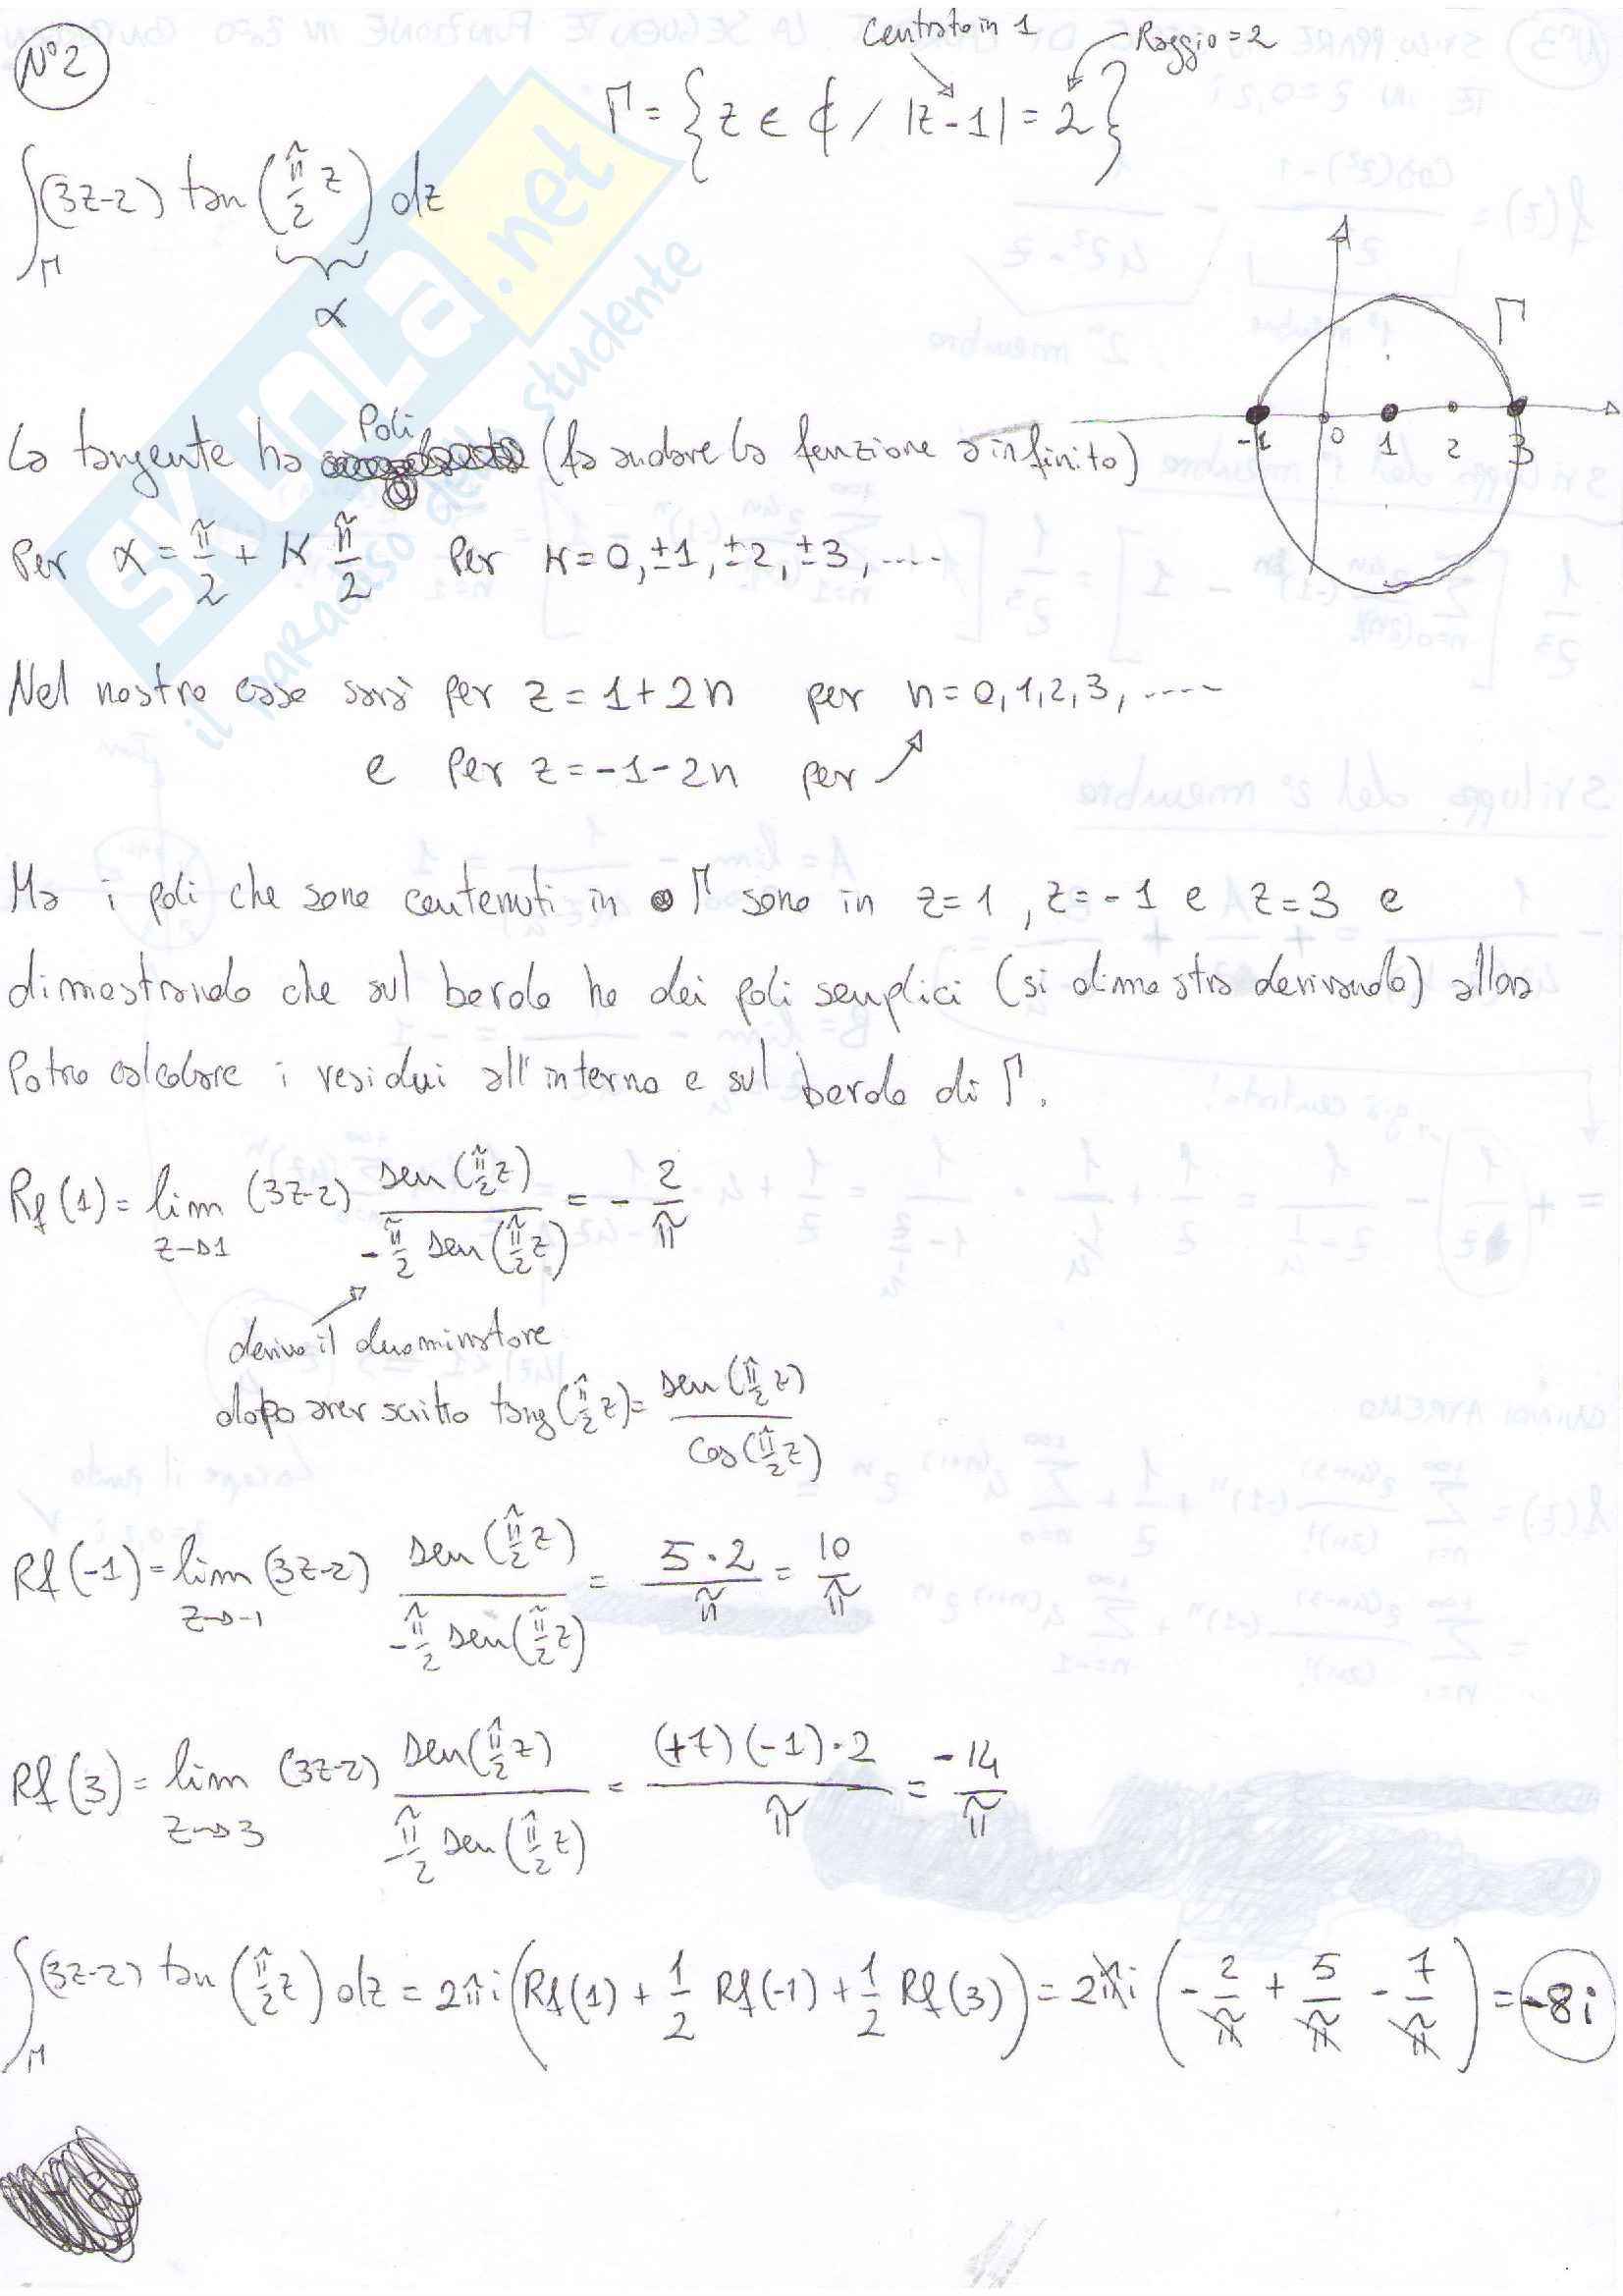 N°2
Centrato in 1
Raggio = 2
Γ = { z ∈ ₵ / |z-1| = 2 }
∫_Γ (3z-2) tan (π/2 z) dz
α
Γ
-1 0 1 2 3
SKUOLA.net
il paradiso dello studente
Poli
La tangente ha (fa andare la funzione a infinito)
Per α = π/2 + K π/2 per K = 0, ±1, ±2, ±3, ....
Nel nostro caso sarà per z = 1 + 2n per n = 0, 1, 2, 3, .....
e per z = -1 - 2n per
Ma i poli che sono contenuti in Γ sono in z=1, z=-1 e z=3 e
dimostrando che sul bordo ho dei poli semplici (si dimostra derivando) allora
Potrò calcolare i residui all'interno e sul bordo di Γ.
Rf(1) = lim z→1 (3z-2) sen(π/2 z) / -π/2 sen(π/2 z) = - 2/π
derivo il denominatore
dopo aver scritto tang(π/2 z) = sen(π/2 z) / cos(π/2 z)
Rf(-1) = lim z→-1 (3z-2) sen(π/2 z) / -π/2 sen(π/2 z) = 5·2/π = 10/π
Rf(3) = lim z→3 (3z-2) sen(π/2 z) / -π/2 sen(π/2 z) = (+7)(-1)·2/π = -14/π
∫_Γ (3z-2) tan (π/2 z) dz = 2πi (Rf(1) + 1/2 Rf(-1) + 1/2 Rf(3)) = 2πi (-2/π + 5/π - 7/π) = -8i